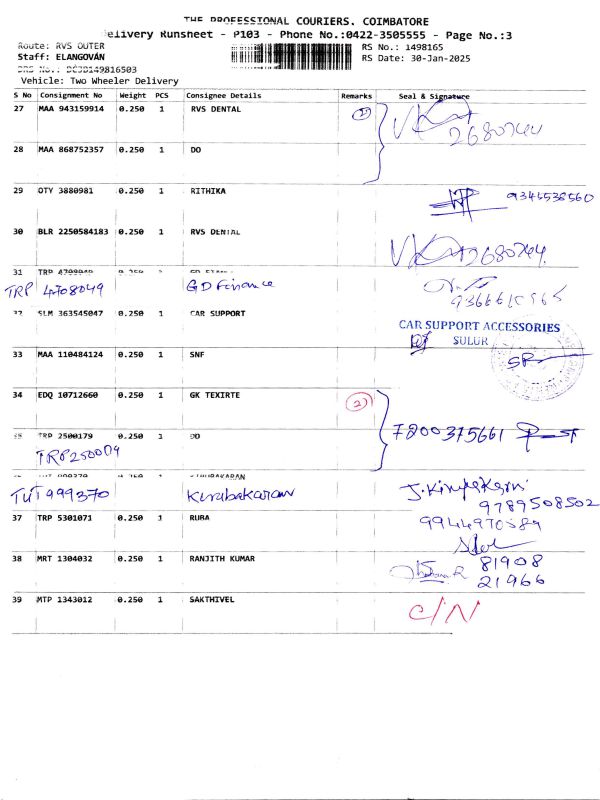 THE PROFESSIONAL COURIERS. COIMBATORE
Delivery Runsheet - P103 - Phone No.:0422-3505555 - Page No.:3
Route: RVS OUTER RS No.: 1498165
Staff: ELANGOVAN RS Date: 30-Jan-2025
Vehicle: Two Wheeler Delivery
S No Consignment No Weight PCS Consignee Details Remarks Seal & Signature
27 MAA 943159914 0.250 1 RVS DENTAL 2
2680744
28 MAA 868752357 0.250 1 DO
29 OTY 3880981 0.250 1 RITHIKA
30 BLR 2250584183 0.250 1 RVS DENTAL 2680744
31 TRP 4708049
TRP 4708049 GD Finance
32 SLM 363545047 0.250 1 CAR SUPPORT
CAR SUPPORT ACCESSORIES
SULUR
33 MAA 110484124 0.250 1 SNF
34 EDQ 10712660 0.250 1 GK TEXIRTE 2
35 TRP 2500179 0.250 1 DO 7200375661
TRP2500179
KIRUBAKARAN
TUT 999370 Kirubakaran
9789508502
37 TRP 5301071 0.250 1 RUBA
38 MRT 1304032 0.250 1 RANJITH KUMAR 81908
21966
39 MTP 1343012 0.250 1 SAKTHIVEL C/N